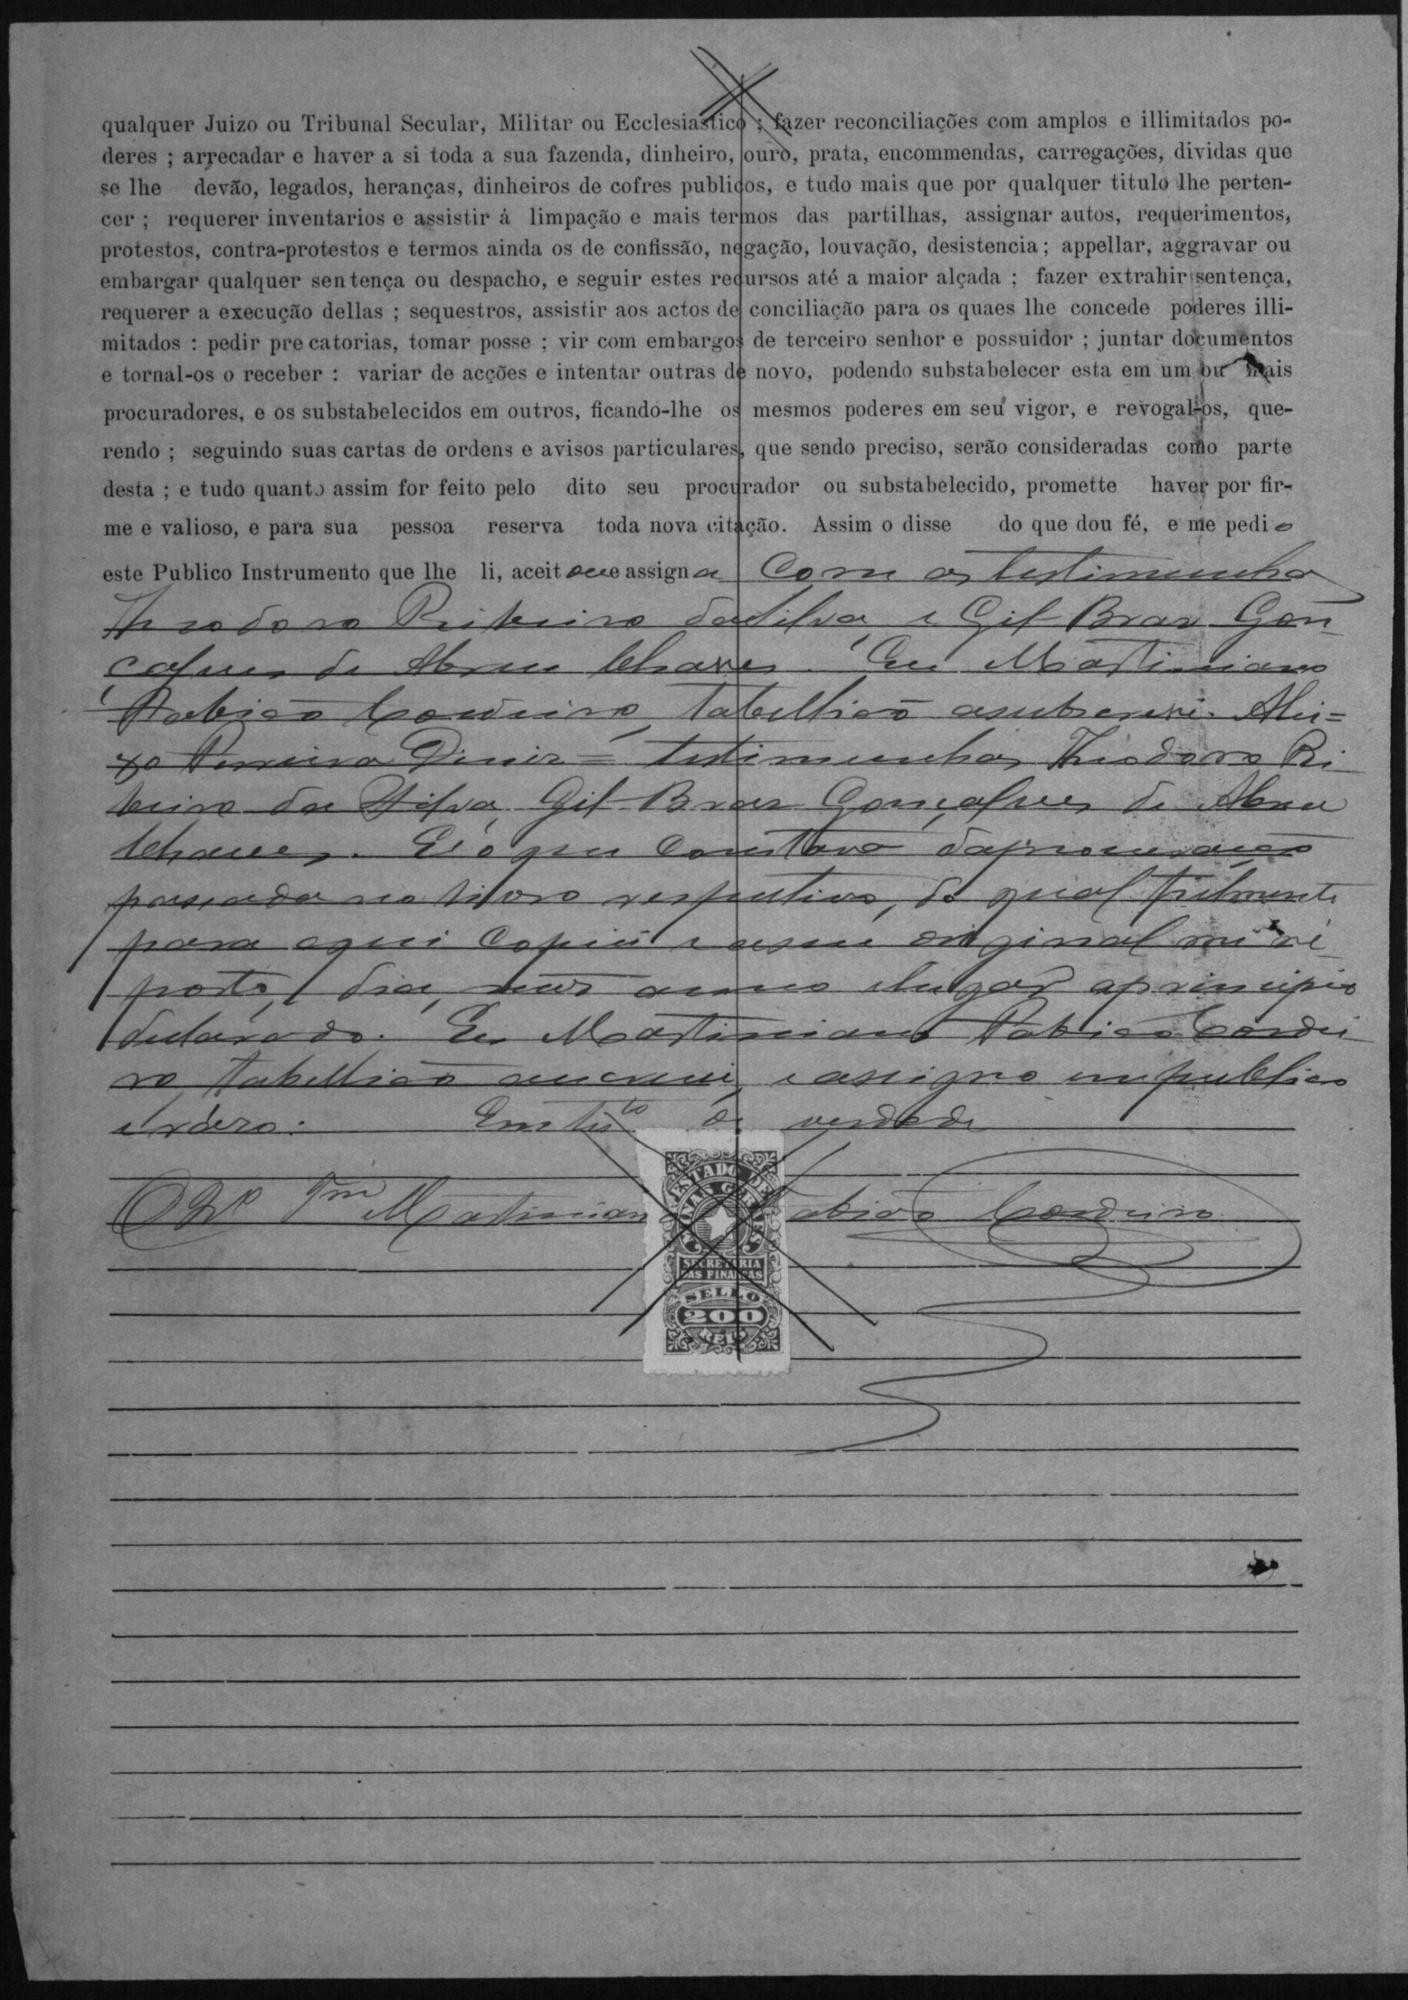 qualquer Juizo ou Tribunal Secular, Militar ou Ecclesiastico ; fazer reconciliações com amplos e illimitados po-
deres ; arrecadar e haver a si toda a sua fazenda, dinheiro, ouro, prata, encommendas, carregações, dividas que
se lhe devão, legados, heranças, dinheiros de cofres publicos, e tudo mais que por qualquer titulo lhe perten-
cer ; requerer inventarios e assistir á limpação e mais termos das partilhas, assignar autos, requerimentos,
protestos, contra-protestos e termos ainda os de confissão, negação, louvação, desistencia ; appellar, aggravar ou
embargar qualquer sentença ou despacho, e seguir estes recursos até a maior alçada ; fazer extrahir sentença,
requerer a execução dellas ; sequestros, assistir aos actos de conciliação para os quaes lhe concede poderes illi-
mitados : pedir precatorias, tomar posse ; vir com embargos de terceiro senhor e possuidor ; juntar documentos
e tornal-os o receber : variar de acções e intentar outras de novo, podendo substabelecer esta em um ou mais
procuradores, e os substabelecidos em outros, ficando-lhe os mesmos poderes em seu vigor, e revogal-os, que-
rendo ; seguindo suas cartas de ordens e avisos particulares, que sendo preciso, serão consideradas como parte
desta ; e tudo quanto assim for feito pelo dito seu procurador ou substabelecido, promette haver por fir-
me e valioso, e para sua pessoa reserva toda nova citação. Assim o disse do que dou fé, e me pedio
este Publico Instrumento que lhe li, aceitou e assigna com as testimunhas
Theodoro Ribeiro da Silva e Gil Braz Gon
çalves de Abreu Chaves. Eu Martiniano
Fabião Cordeiro, tabellião a subscrevi. Alei=
xo Ferreira Diniz = testimunhas Theodoro Ri
beiro da Silva, Gil Braz Gonçalves de Abreu
Chaves. E' o que constava da procuração
passada no livro respectivo, do qual fielmente
para aqui copiei e a seu original me re
porto, dia, mez anno e lugar a principio
declarado. Eu Martiniano Fabião Cordei
ro, tabellião escrevi, e assigno em publico
e razo. Em tes.to de verdade
Martiniano Fabião Cordeiro
ESTADO DE
MINAS GERAES
SECRETARIA
DAS FINANÇAS
SELLO
200
REIS